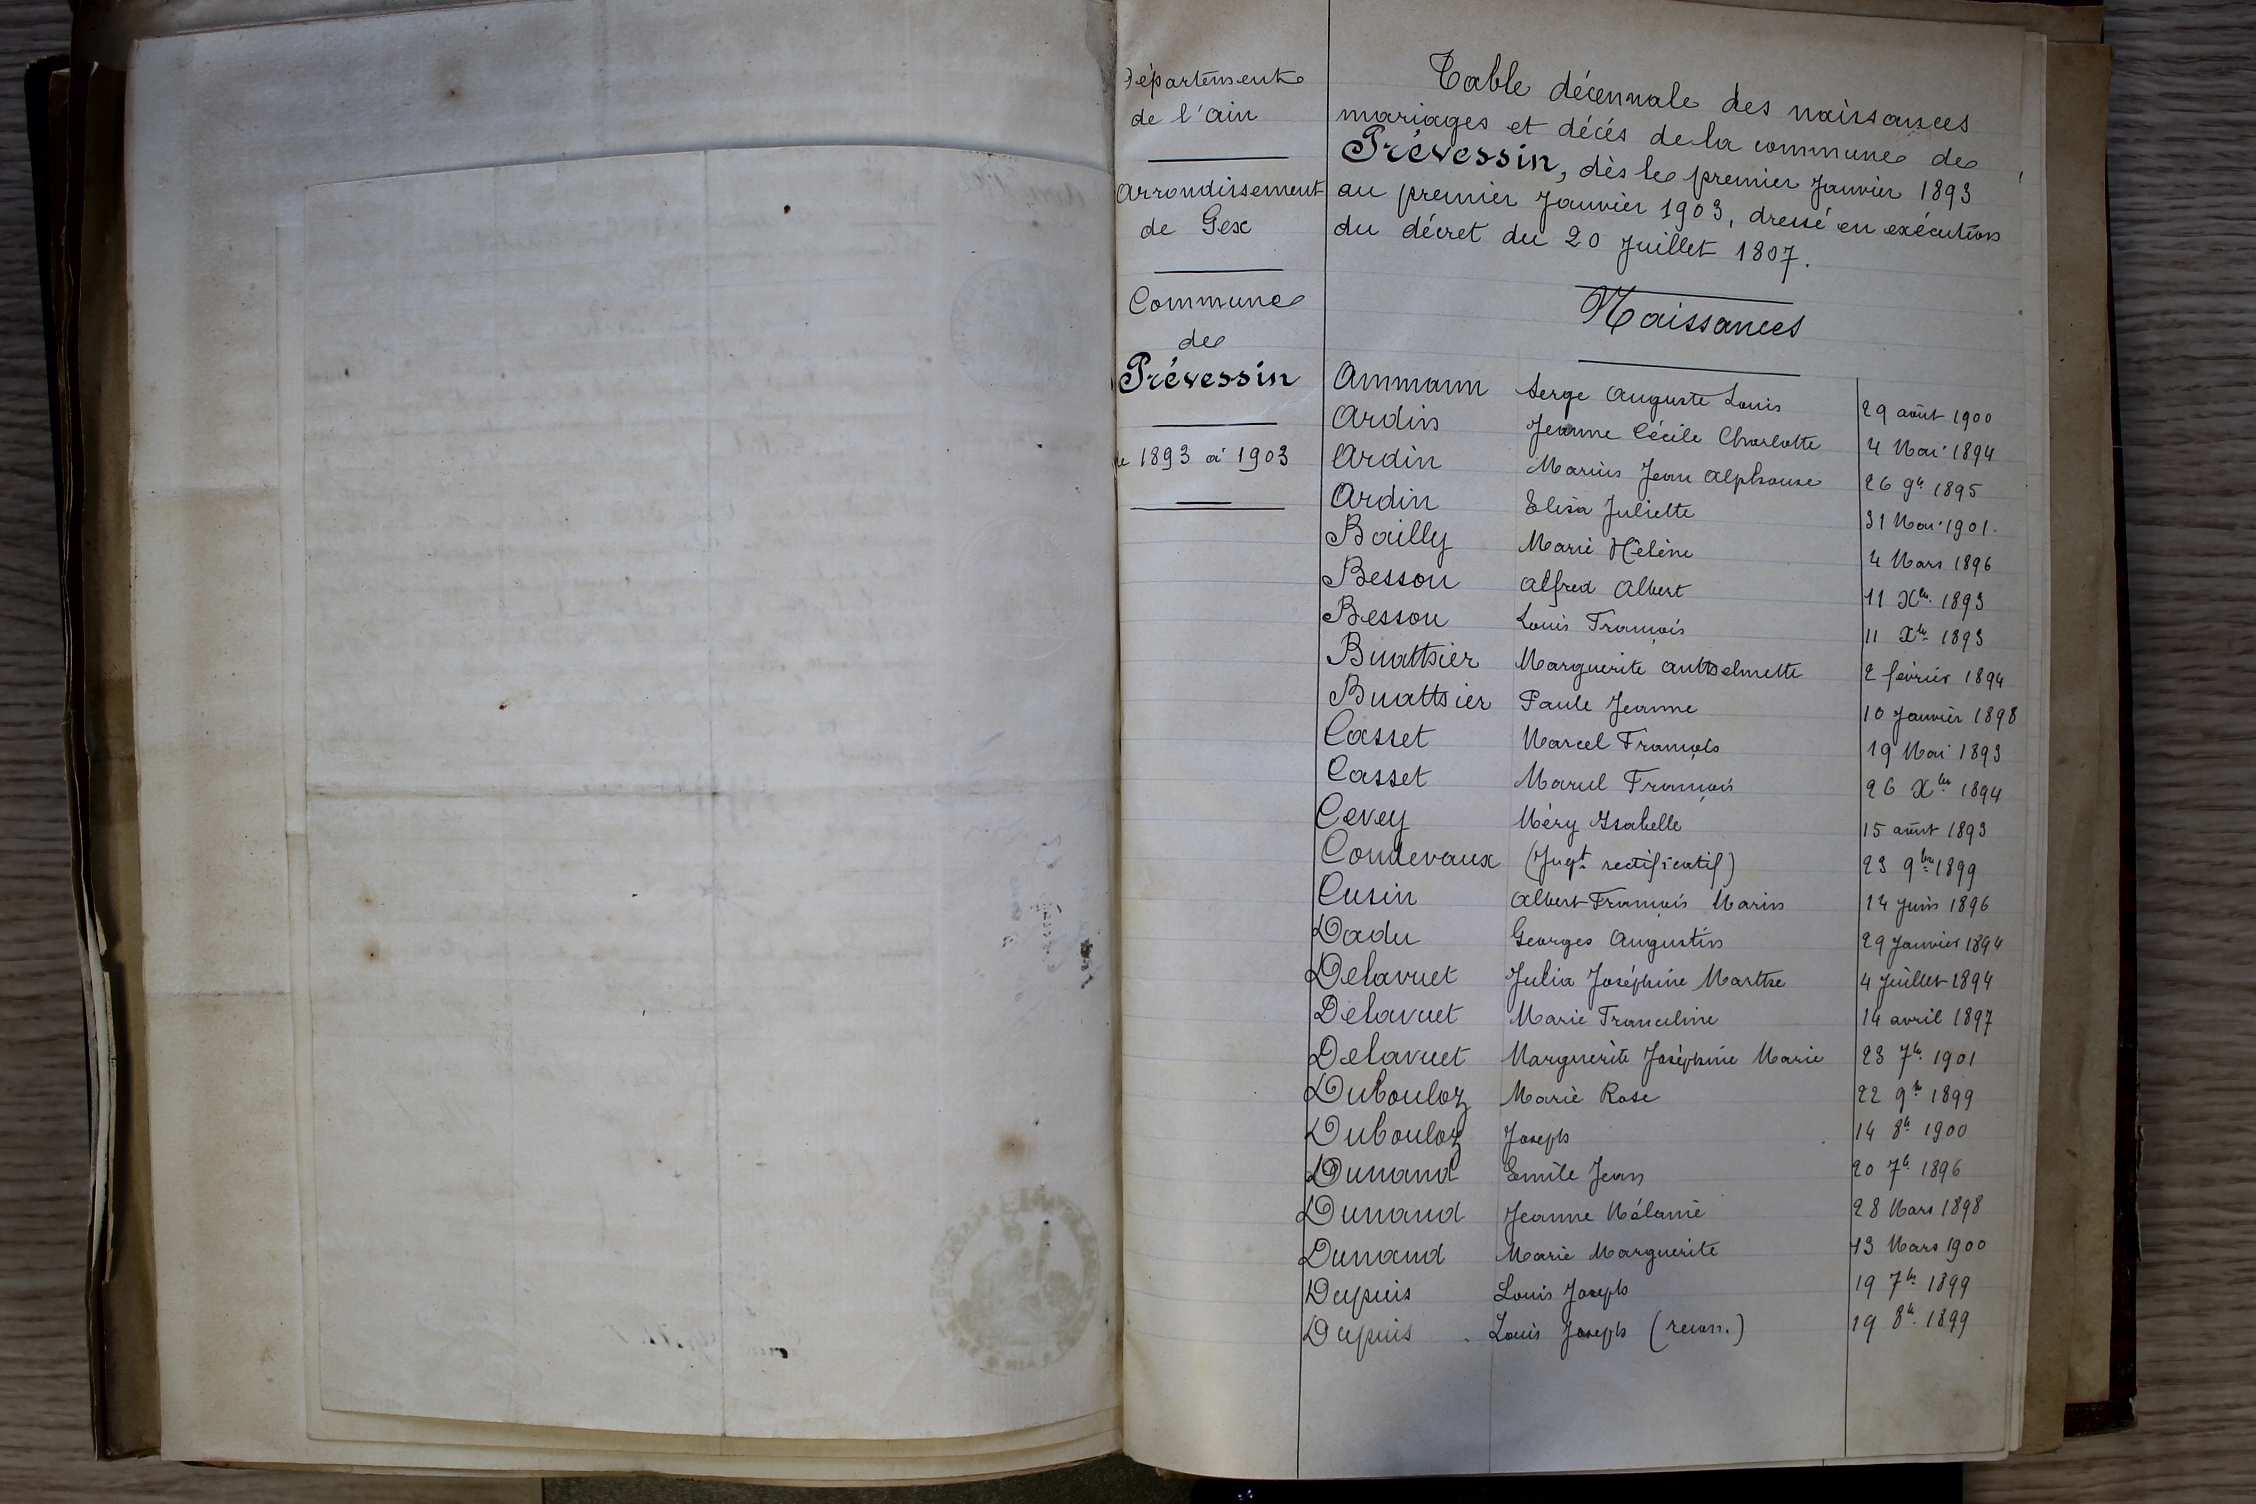 Département
de l'ain
arrondissement
de Gex
Commune
de
Prévessin
de 1893 à 1903
Table décennale des naissances
mariages et décés de la commune de
Prévessin, dès le premier Janvier 1893
au premier Janvier 1903, dressé en exécution
du décret du 20 Juillet 1807.
Naissances
Ammann Serge Auguste Louis 29 août 1900
Ardin Jeanne Cécile Charlotte 4 Mai 1894
Ardin Marius Jean Alphonse 26 9b 1895
Ardin Elisa Juliette 31 Mai 1901.
Bailly Marie Hélène 4 Mars 1896
Besson Alfred Albert 11 Xbr. 1893
Besson Louis François 11 Xbr 1893
Buathier Marguerite Anthelmette 2 février 1894
Buathier Paule Jeanne 10 Janvier 1898
Casset Marcel François 19 Mai 1893
Casset Marcel François 26 Xbr 1894
Cevey Méry Isabelle 15 août 1893
Condevaux (Jugt rectificatif) 23 9bre 1899
Cusin Albert François Marius 14 Juin 1896
Dadu Georges Augustin 29 Janvier 1894
Delavuet Julia Joséphine Marthe 4 Juillet 1894
Delavuet Marie Franceline 14 avril 1897
Delavuet Marguerite Joséphine Marie 23 7b. 1901
Dubouloz Marie Rose 22 9b 1899
Dubouloz Joseph 14 8b 1900
Dunand Emile Jean 20 7b 1896
Dunand Jeanne Mélanie 28 Mars 1898
Dunand Marie Marguerite 13 Mars 1900
Dupuis Louis Joseph 19 7br 1899
Dupuis Louis Joseph (recon.) 19 8b. 1899